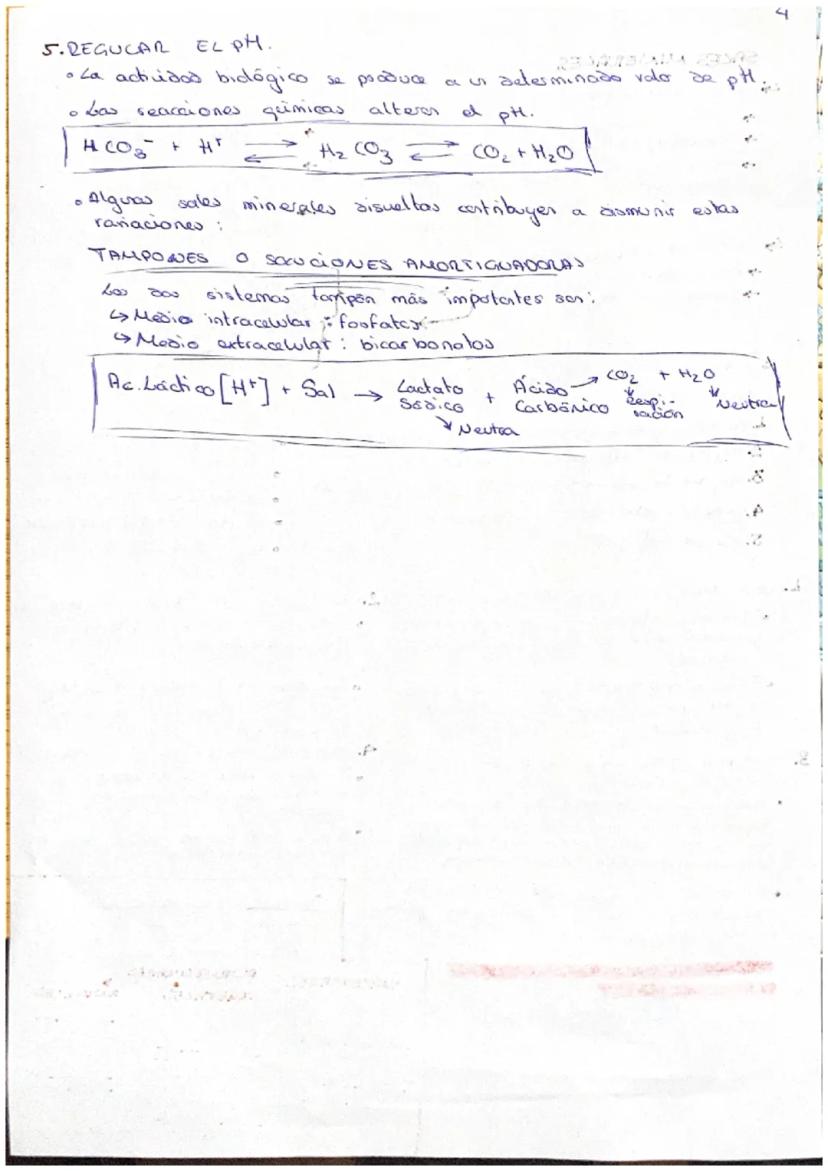 4
5. REGULAR EL pH.
• La actividad biológica se produce a un determinado valor de pH.
• Las reacciones químicas alteran el pH.
HCO₃⁻ + H⁺ ⇄ H₂CO₃ ⇄ CO₂ + H₂O
• Algunas sales minerales disueltas contribuyen a disminuir estas
variaciones:
TAMPONES O SOLUCIONES AMORTIGUADORAS
Los dos sistemas tampón más importantes son:
↳ Medio intracelular: fosfatos
↳ Medio extracelular: bicarbonatos
Ac. Láctico [H⁺] + Sal → Lactato Sódico + Ácido Carbónico → CO₂ + H₂O
↘ Neutra
↓ Respiración
↓ Neutra